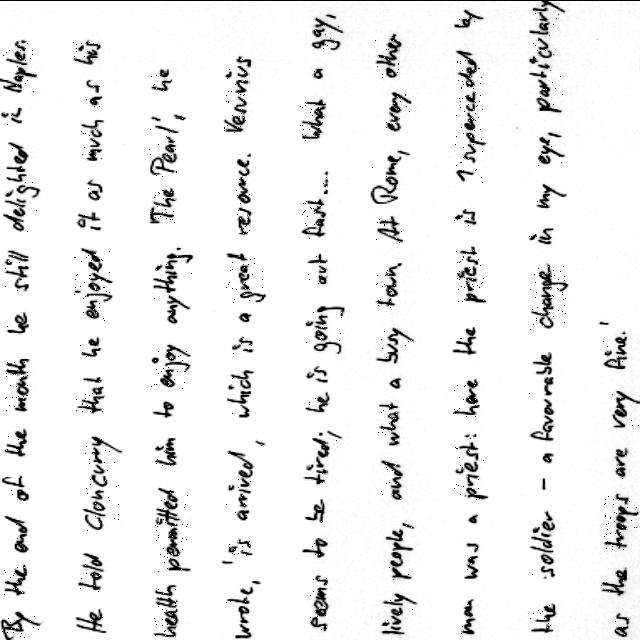 By the end of the month he still delighted in Naples.
He told Cloncurry that he enjoyed it as much as his
health permitted him to enjoy anything. 'The Pearl', he
wrote, 'is arrived, which is a great resource. Vesuvius
seems to be tired; he is going out fast.... What a gay,
lively people, and what a busy town. At Rome, every other
man was a priest: here the priest is superceded by
the soldier - a favourable change in my eye, particularly
as the troops are very fine.'